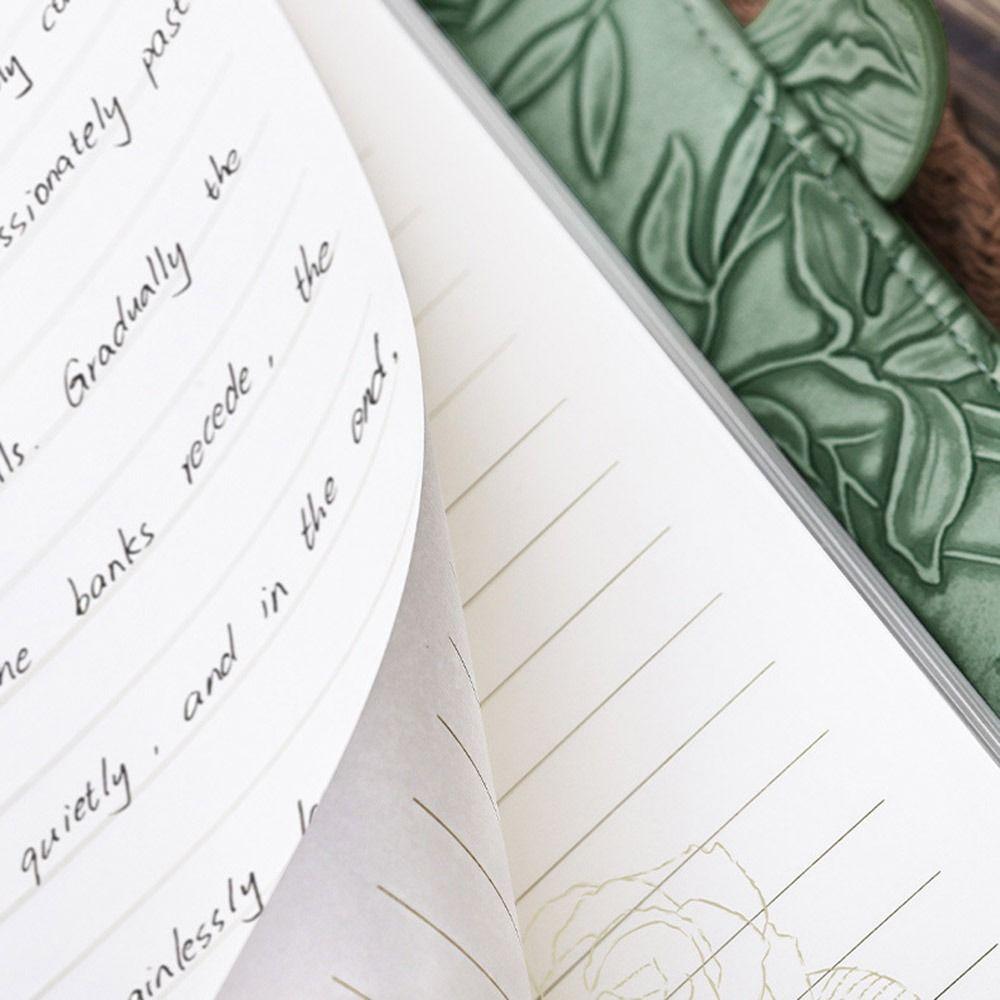 ssionately past
lls. Gradually the
he banks recede, the
quietly, and in the end,
ainlessly lo